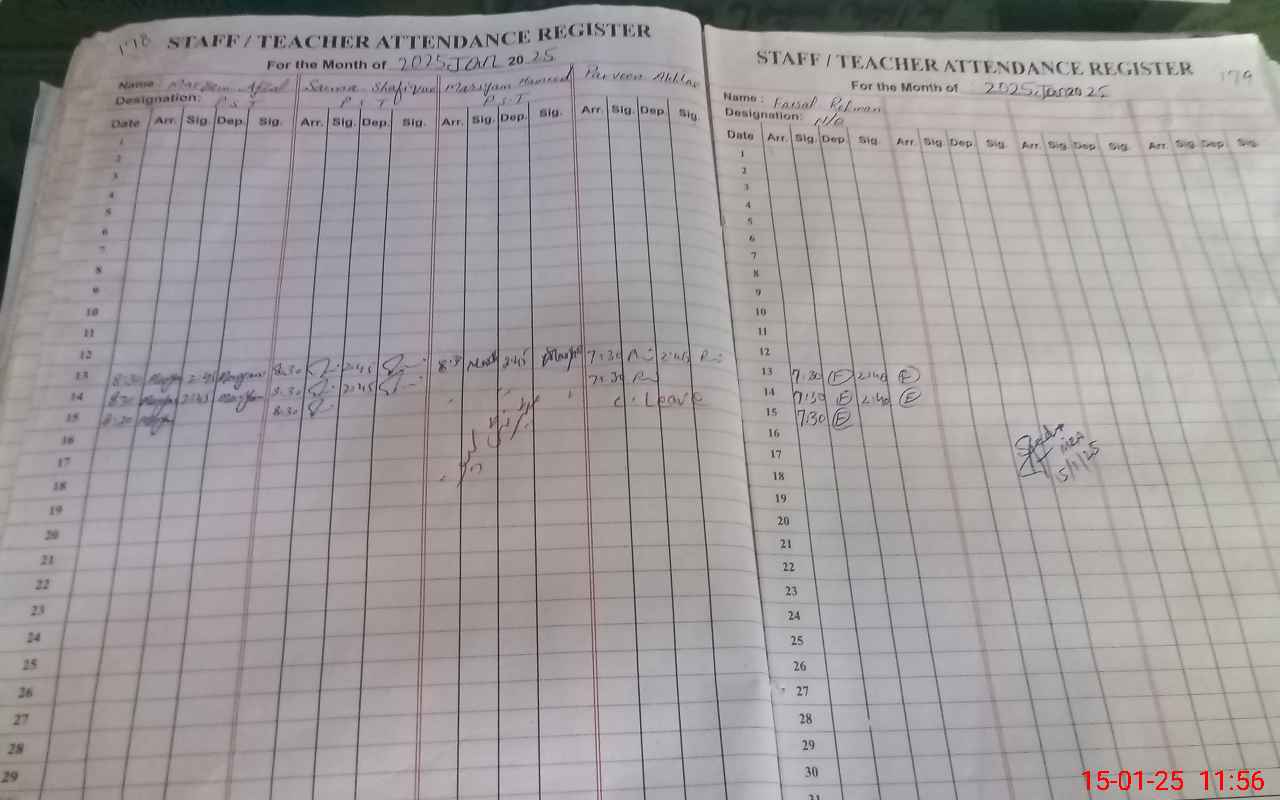 178
STAFF / TEACHER ATTENDANCE REGISTER
For the Month of 2025 JAN 2025
Name: Maryam Afzal Saima Shafique Maryam Hameed Parveen Akhtar
Designation: P.S.T P.S.T P.S.T
Date Arr. Sig. Dep. Sig. Arr. Sig. Dep. Sig. Arr. Sig. Dep. Sig. Arr. Sig. Dep. Sig.
1
2
3
4
5
6
7
8
9
10
11
12
13 8:30 Maryam 2:45 Maryam 8:30 2:45 8:30 2:45 7:30 2:45
14 8:30 Maryam 2:45 Maryam 8:30 2:45 7:30
15 8:30 Maryam 8:30 C. Leave
16
17
18
19
20
21
22
23
24
25
26
27
28
29
179
STAFF / TEACHER ATTENDANCE REGISTER
For the Month of 2025 Jan 2025
Name: Faisal Rehman
Designation: N/Q
Date Arr. Sig. Dep. Sig. Arr. Sig. Dep. Sig. Arr. Sig. Dep. Sig. Arr. Sig. Dep. Sig.
1
2
3
4
5
6
7
8
9
10
11
12
13 7:30 F 2:40 F
14 7:30 F 2:40 F
15 7:30 F
16
17
18
19
20
21
22
23
24
25
26
27
28
29
30
31
MEA
15/1/25
15-01-25 11:56